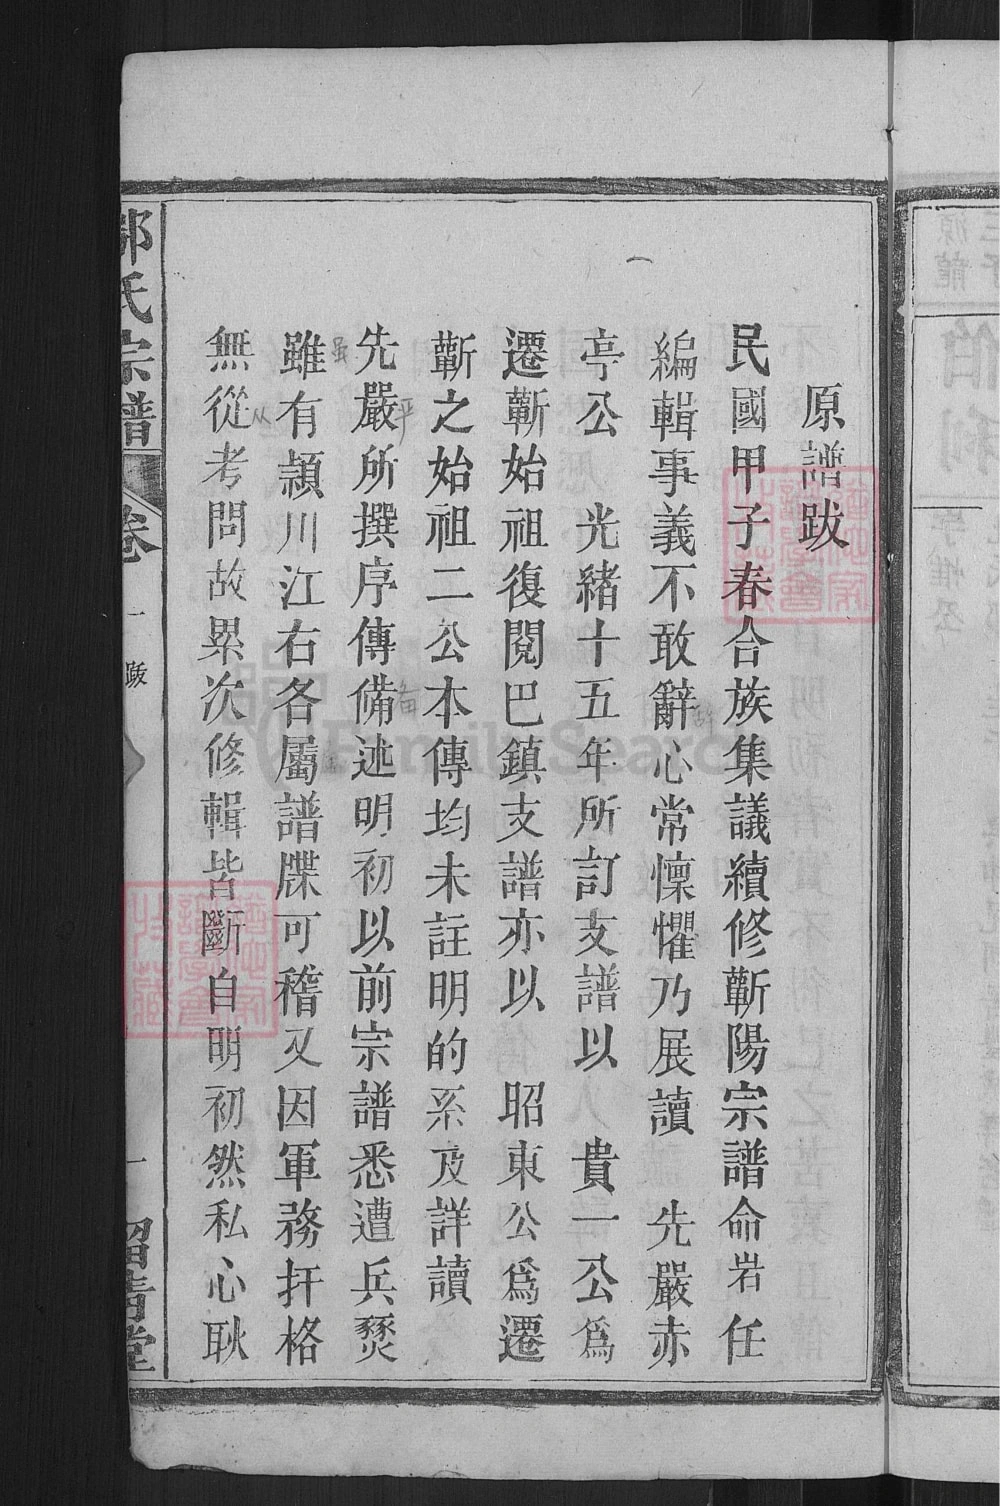 原譜跋
民國甲子春合族集議續修蘄陽宗譜命岩任
編輯事義不敢辭心常懍懼乃展讀 先嚴赤
亭公 光緒十五年所訂支譜以 貴一公爲
遷蘄始祖復閱巴鎮支譜亦以 昭東公爲遷
蘄之始祖二公本傳均未註明的系及詳讀
先嚴所撰序傳備述明初以前宗譜悉遭兵燹
雖有頴川江右各屬譜牒可稽又因軍務扞格
無從考問故累次修輯皆斷自明初然私心耿
氏宗譜
卷一
跋
一
FamilySearch